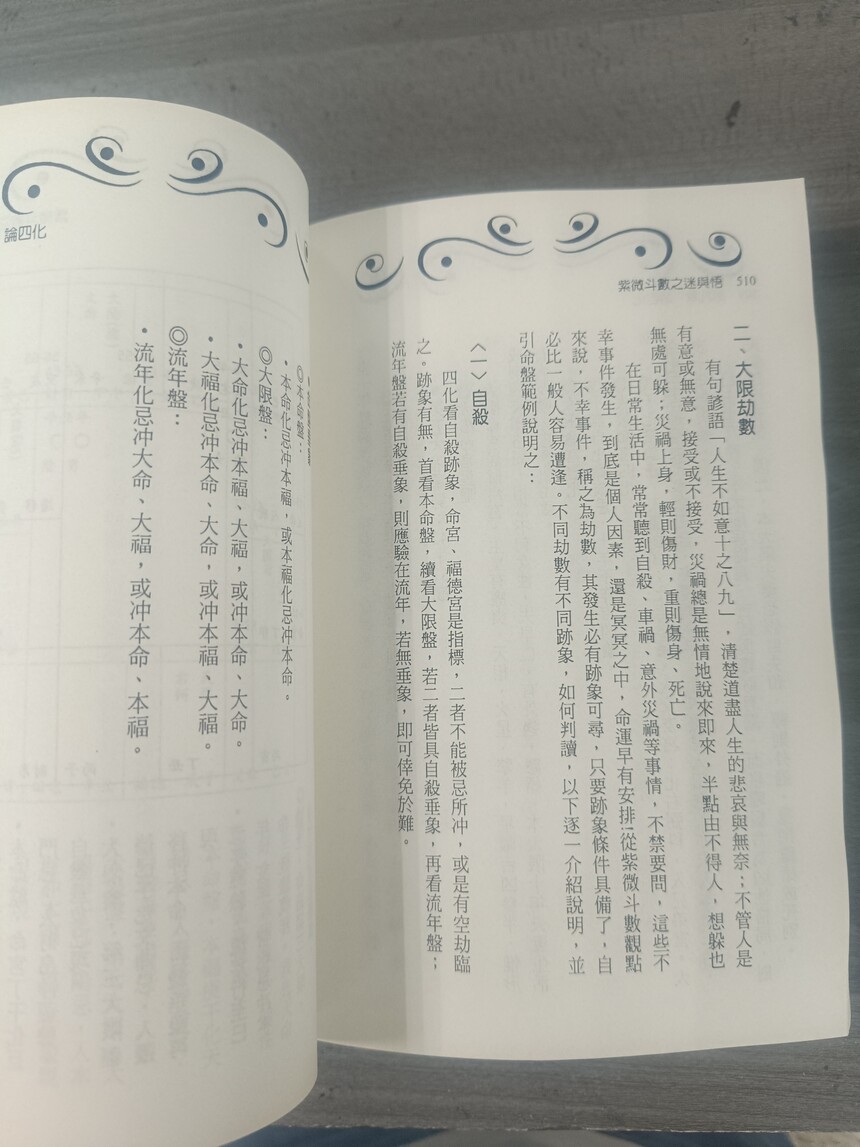 紫微斗數之迷與悟 510
二、大限劫數
有句諺語「人生不如意十之八九」，清楚道盡人生的悲哀與無奈；不管人是
有意或無意，接受或不接受，災禍總是無情地說來即來，半點由不得人，想躲也
無處可躲；災禍上身，輕則傷財，重則傷身、死亡。
在日常生活中，常常聽到自殺、車禍、意外災禍等事情，不禁要問，這些不
幸事件發生，到底是個人因素，還是冥冥之中，命運早有安排！從紫微斗數觀點
來說，不幸事件，稱之為劫數，其發生必有跡象可尋，只要跡象條件具備了，自
必比一般人容易遭逢。不同劫數有不同跡象，如何判讀，以下逐一介紹說明，並
引命盤範例說明之：
〈一〉自殺
四化看自殺跡象，命宮、福德宮是指標，二者不能被忌所沖，或是有空劫臨
之。跡象有無，首看本命盤，續看大限盤，若二者皆具自殺垂象，再看流年盤；
流年盤若有自殺垂象，則應驗在流年，若無垂象，即可倖免於難。
論四化
◎本命盤：
•本命化忌冲本福，或本福化忌冲本命。
◎大限盤：
•大命化忌冲本福、大福，或冲本命、大命。
•大福化忌冲本命、大命，或冲本福、大福。
◎流年盤：
•流年化忌冲大命、大福，或冲本命、本福。